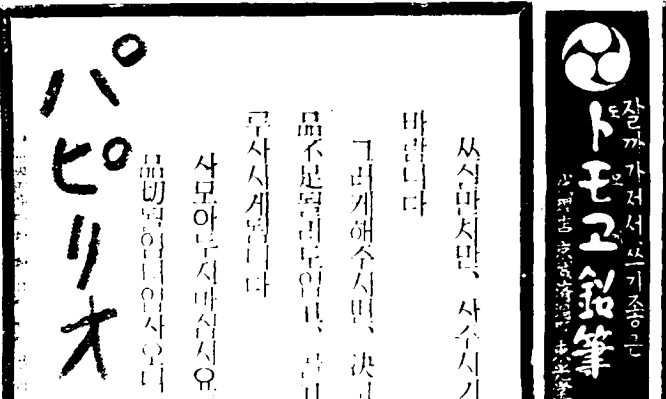 잘까가저서쓰기좋은
トモヱ鉛筆
쓰신만치만、사주시기
바랍니다
그러케해주시면、決
品不足될리도업고、
루사시게됩니다
사모아두지마십시요
品切될염녀업사오니
パピリオ